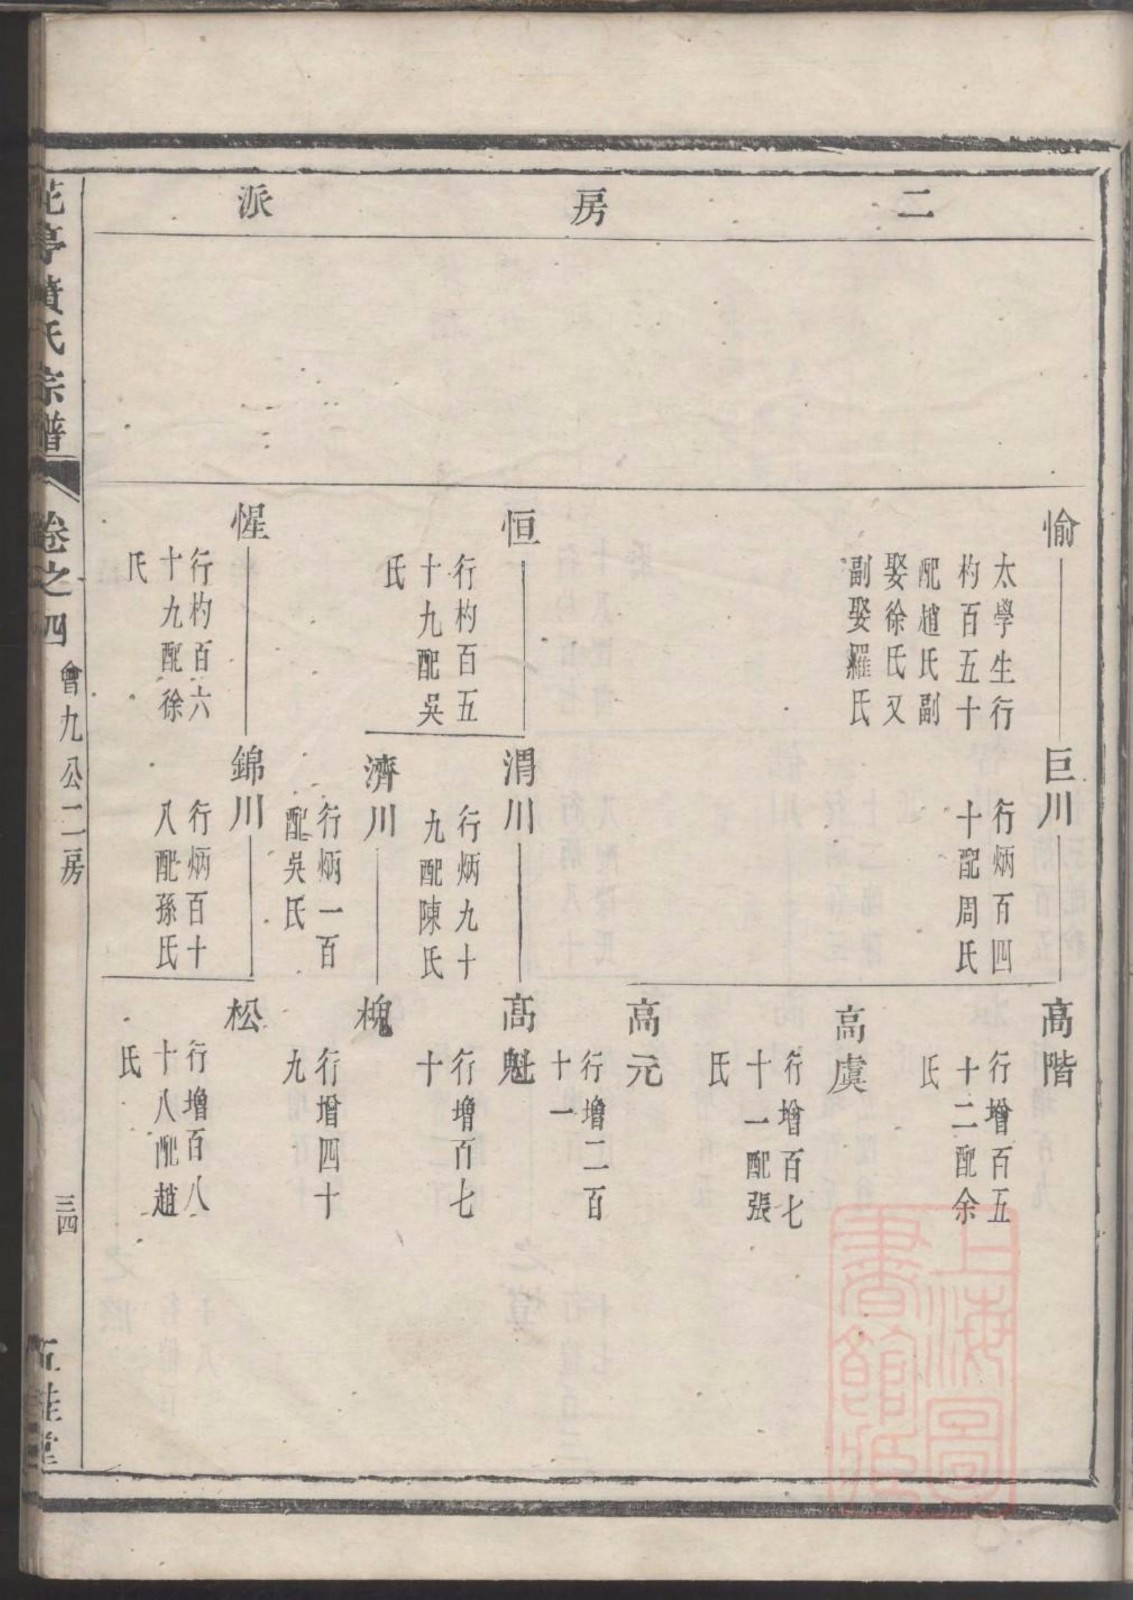 二房派
愉
太學生行
杓百五十
配趙氏副
娶徐氏又
副娶羅氏
恒
行杓百五
十九配吳
氏
惺
行杓百六
十九配徐
氏
巨川
行炳百四
十配周氏
渭川
行炳九十
九配陳氏
濟川
行炳一百
配吳氏
錦川
行炳百十
八配孫氏
高階
行增百五
十二配余
氏
高虞
行增百七
十一配張
氏
高元
行增二百
十一
高魁
行增百七
十
槐
行增四十
九
松
行增百八
十八配趙
氏
亭黄氏宗譜
卷之四
會九公二房
三四
五桂堂
上海圖書館藏